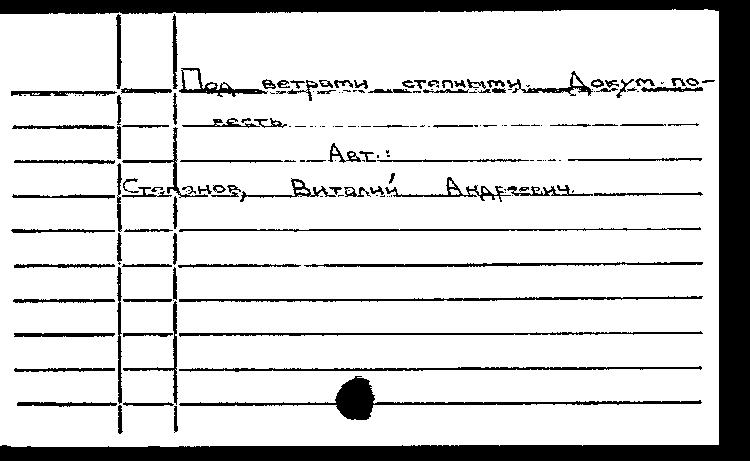 Под ветрами степными. Докум. по-
весть.
Авт.:
Степанов, Виталий Андреевич.